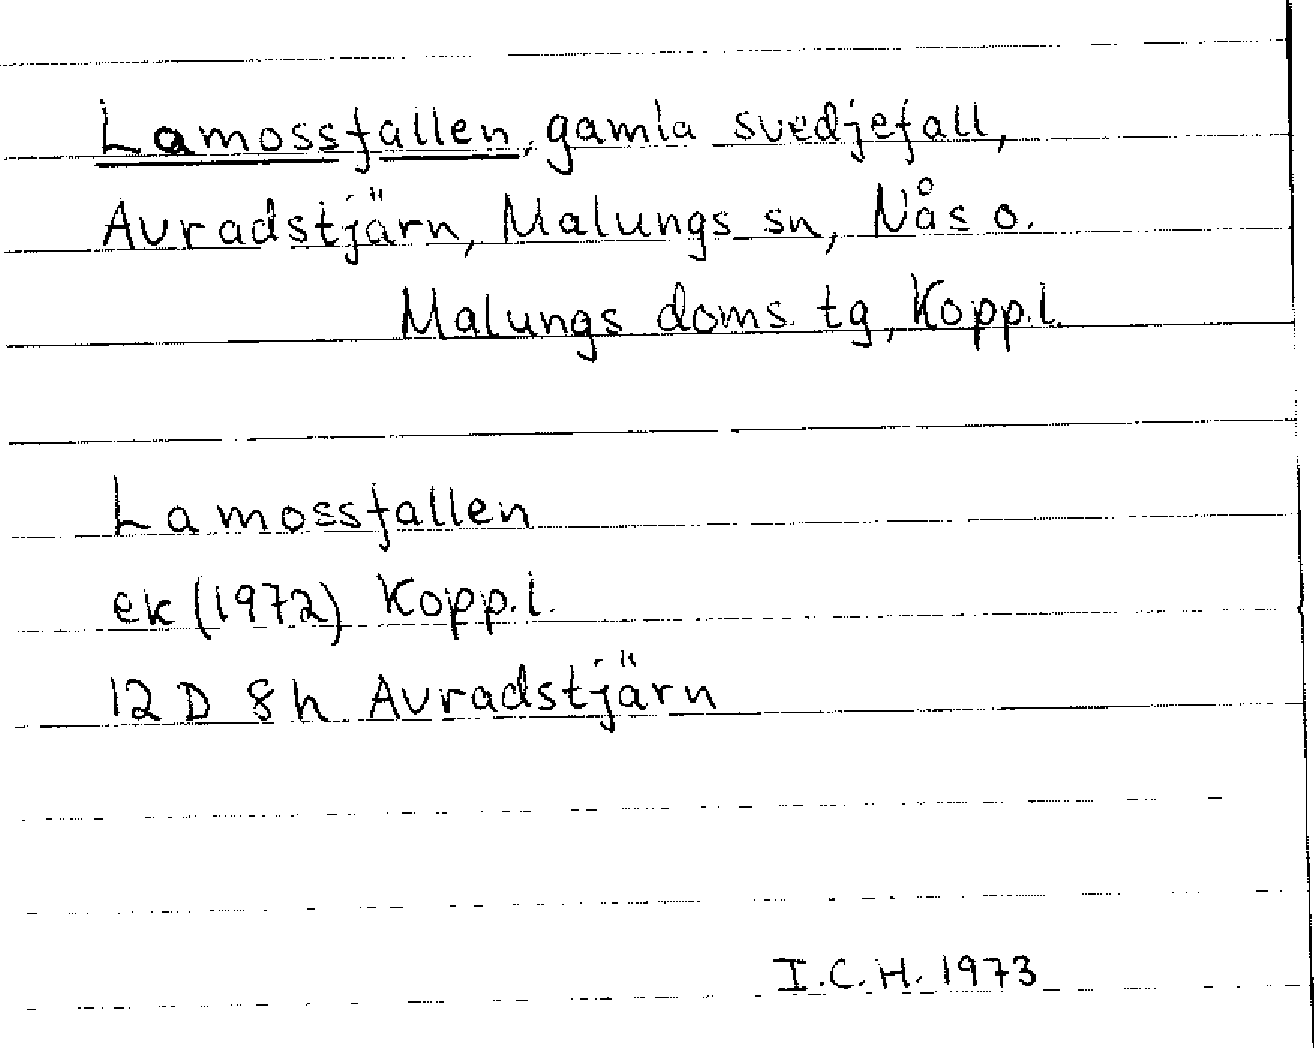 Lamossfallen, gamla svedjefall,
Avradstjärn, Malungs sn, Nås o.
Malungs doms. tg, Kopp.l.
Lamossfallen
ek (1972) Kopp.l.
12 D 8h Avradstjärn
I.C.H. 1973